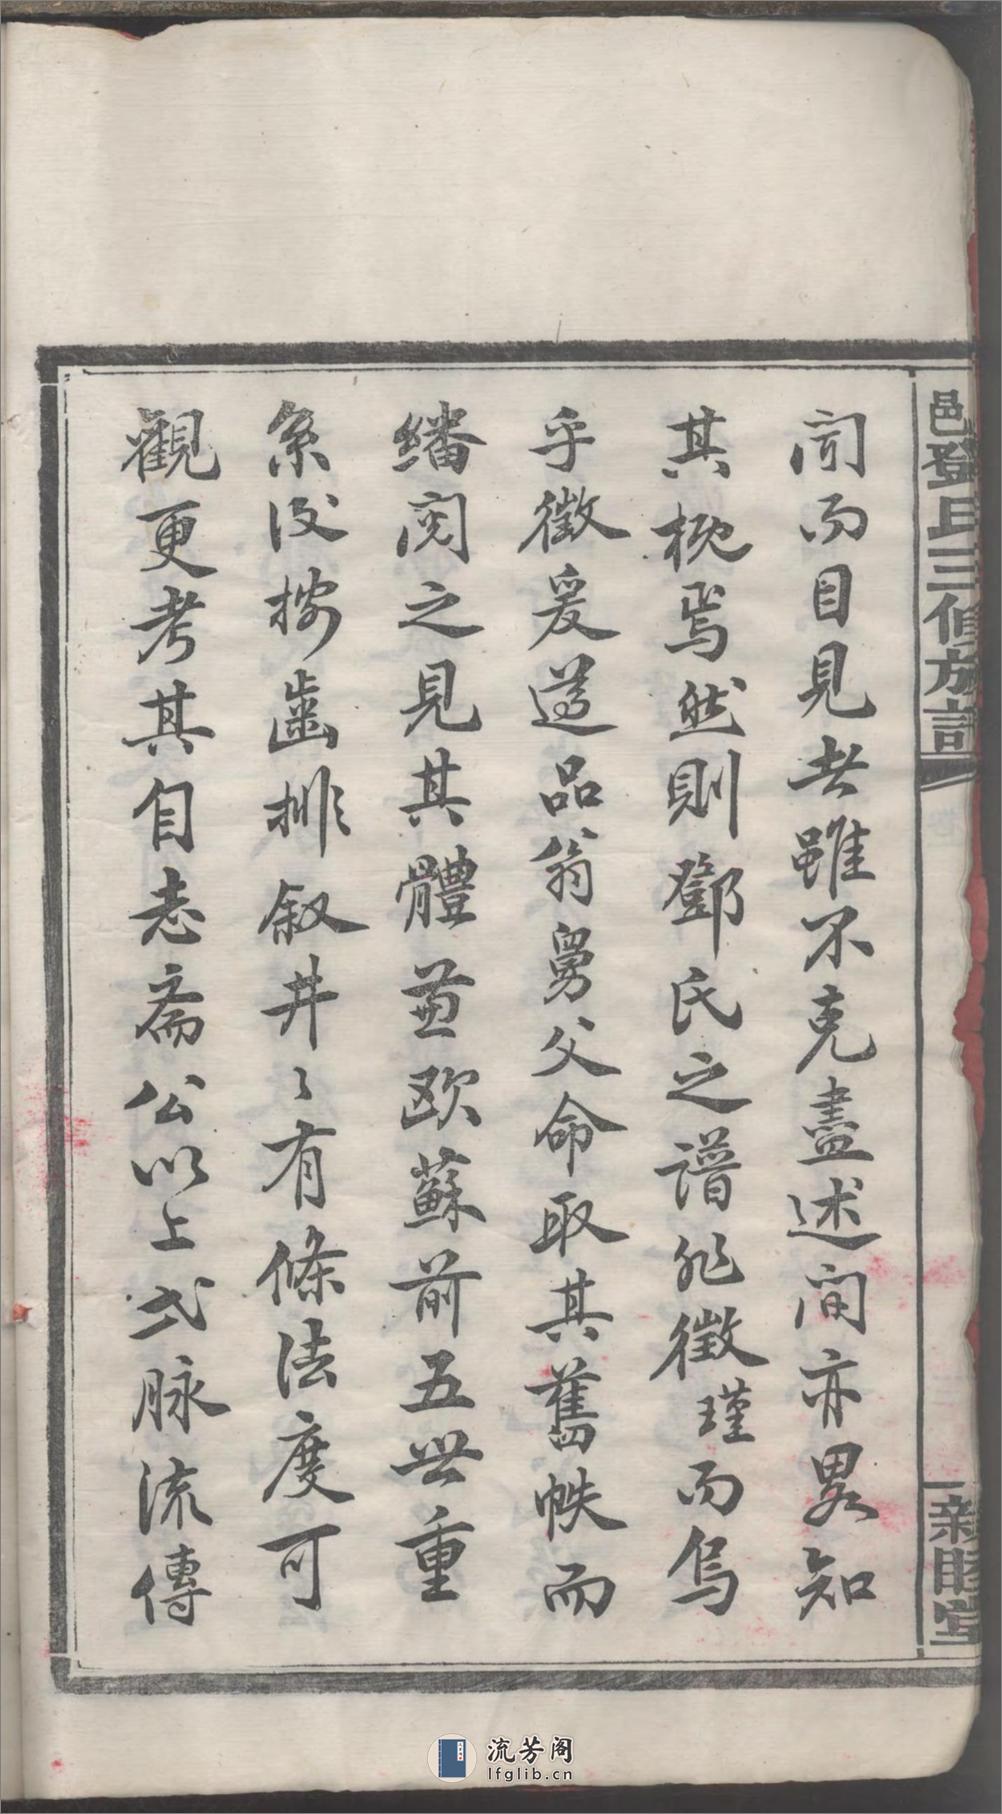 聞而目見者雖不克盡述間亦畧知
其概焉然則鄧氏之譜非徵瑾而烏
乎徵爰遵品翁舅父命取其舊帙而
繙閱之見其體蓋歐蘇前五世重
系後按齒排叙井〻有條法度可
觀更考其自志齋公以上弍脉流傳
邑鄧氏三修族譜
親睦堂
流芳阁
lfglib.cn